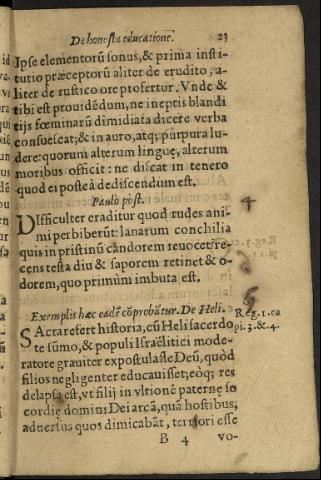 De honesta educatione. 23
Ipse elementorū sonus, & prima insti-
tutio præceptorū aliter de erudito, a-
liter de rustico ore profertur. Vnde &
tibi est prouidēdum, ne ineptis blandi
tijs fœminarū dimidiata dicere verba
consuescat; & in auro, atq; purpura lu-
dere: quorum alterum linguę, alterum
moribus officit: ne discat in tenero
quod ei posteà dediscendum est.
Paulò pòst.
4
Difficulter eraditur quod rudes ani-
mi perbiberūt: lanarum conchilia
quis in pristinū candorem reuocet? re-
cens testa diu & saporem retinet & o-
dorem, quo primùm imbuta est.
Exemplis hæc eadē cōprobātur. De Heli.
Reg. 1. ca
pi. 3. & 4.
SAcra refert historia, cū Heli sacerdo
te sūmo, & populi Israëlitici mode-
ratore grauiter expostulasse Deū, quòd
filios negligenter educauisset; eòq; res
delapsa est, vt filij in vltionē paternę so
cordię domini Dei arcā, quā hostibus,
aduersus quos dimicabāt, terrori esse
B 4 vo-